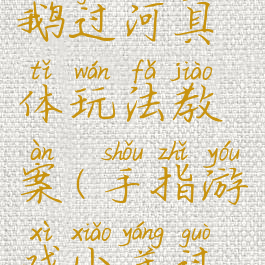 鹅过河具
tǐ wán fǎ jiào
体玩法教
àn shǒu zhǐ yóu
案(手指游
xì xiǎo yáng guò
戏小羊过